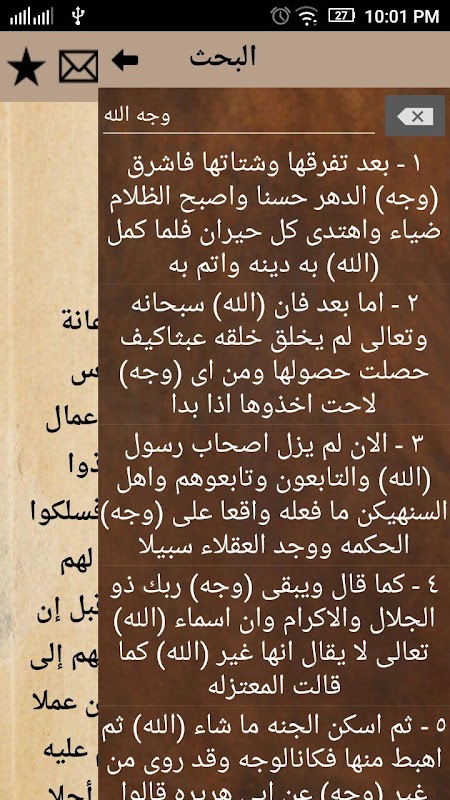 27 10:01 PM
البحث
وجه الله
١ - بعد تفرقها وشتاتها فاشرق
(وجه) الدهر حسنا واصبح الظلام
ضياء واهتدى كل حيران فلما كمل
(الله) به دينه واتم به
٢ - اما بعد فان (الله) سبحانه
وتعالى لم يخلق خلقه عبثاكيف
حصلت حصولها ومن اى (وجه)
لاحت اخذوها اذا بدا
٣ - الان لم يزل اصحاب رسول
(الله) والتابعون وتابعوهم واهل
السنهيكن ما فعله واقعا على (وجه)
الحكمه ووجد العقلاء سبيلا
٤ - كما قال ويبقى (وجه) ربك ذو
الجلال والاكرام وان اسماء (الله)
تعالى لا يقال انها غير (الله) كما
قالت المعتزله
٥ - ثم اسكن الجنه ما شاء (الله) ثم
اهبط منها فكانالوجه وقد روى من
غير (وجه) عن ابى هريره قالوا
عمال
فسلكوا
لهم
قبل إن
هم إلى
ن عملا
عليه